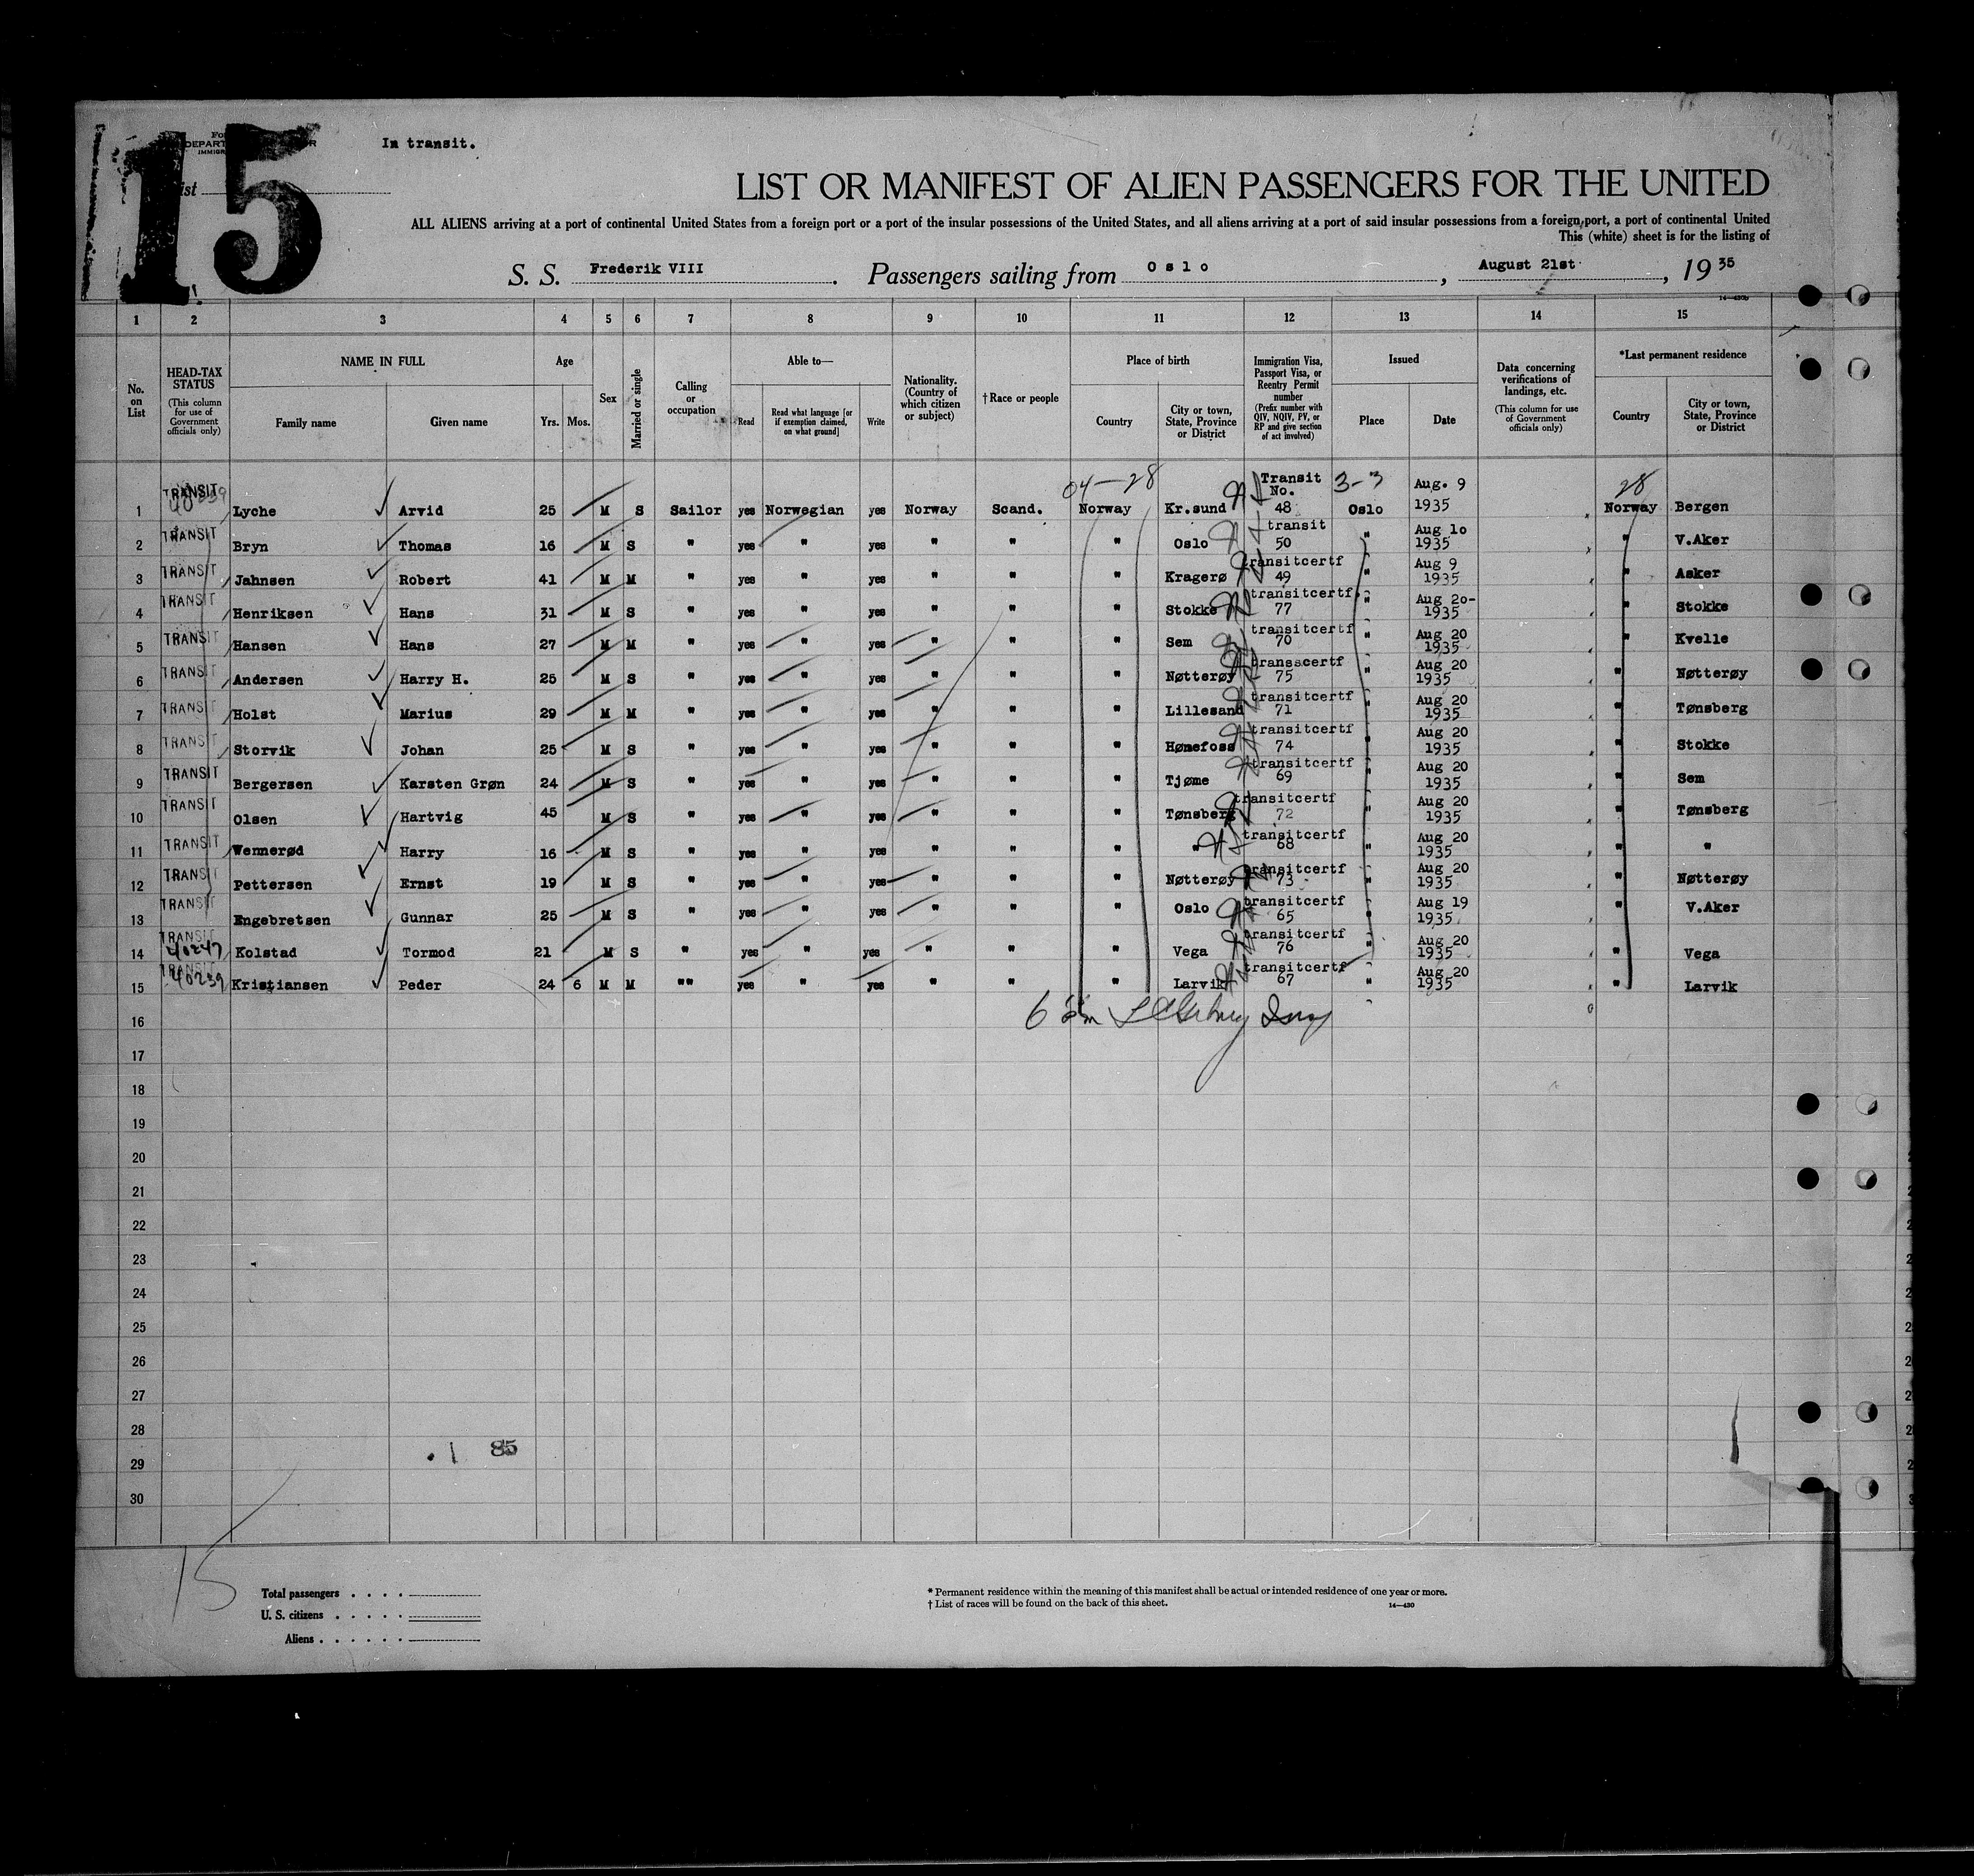 15
In transit.
LIST OR MANIFEST OF ALIEN PASSENGERS FOR THE UNITED
ALL ALIENS arriving at a port of continental United States from a foreign port or a port of the insular possessions of the United States, and all aliens arriving at a port of said insular possessions from a foreign port, a port of continental United
This (white) sheet is for the listing of
S. S. Frederik VIII. Passengers sailing from Oslo, August 21st, 1935
14—430b
1 2 3 4 5 6 7 8 9 10 11 12 13 14 15
No. on List
HEAD-TAX STATUS (This column for use of Government officials only)
NAME IN FULL
Family name Given name
Age
Yrs. Mos.
Sex
Married or single
Calling or occupation
Able to—
Read Read what language [or if exemption claimed, on what ground] Write
Nationality. (Country of which citizen or subject)
†Race or people
Place of birth
Country City or town, State, Province or District
Immigration Visa, Passport Visa, or Reentry Permit number (Prefix number with QIV, NQIV, PV, or RP and give section of act involved)
Issued
Place Date
Data concerning verifications of landings, etc. (This column for use of Government officials only)
*Last permanent residence
Country City or town, State, Province or District
04—28 3-3 28
1 TRANSIT 40239 Lyche Arvid 25 M S Sailor yes Norwegian yes Norway Scand. Norway Kr.sund Transit No. 48 Oslo Aug. 9 1935 Norway Bergen
2 TRANSIT Bryn Thomas 16 M S " yes " yes " " " Oslo transit 50 " Aug 10 1935 " V.Aker
3 TRANSIT Jahnsen Robert 41 M M " yes " yes " " " Kragerø transitcertf 49 " Aug 9 1935 " Asker
4 TRANSIT Henriksen Hans 31 M S " yes " yes " " " Stokke transitcertf 77 " Aug 20- 1935 " Stokke
5 TRANSIT Hansen Hans 27 M M " yes " yes " " " Sem transitcertf 70 " Aug 20 1935 " Kvelle
6 TRANSIT Andersen Harry H. 25 M S " yes " yes " " " Nøtterøy transscertf 75 " Aug 20 1935 " Nøtterøy
7 TRANSIT Holst Marius 29 M M " yes " yes " " " Lillesand transitcertf 71 " Aug 20 1935 " Tønsberg
8 TRANSIT Storvik Johan 25 M S " yes " yes " " " Hønefoss transitcertf 74 " Aug 20 1935 " Stokke
9 TRANSIT Bergersen Karsten Grøn 24 M S " yes " yes " " " Tjøme transitcertf 69 " Aug 20 1935 " Sem
10 TRANSIT Olsen Hartvig 45 M S " yes " yes " " " Tønsberg transitcertf 72 " Aug 20 1935 " Tønsberg
11 TRANSIT Wennerød Harry 16 M S " yes " yes " " " " transitcertf 68 " Aug 20 1935 " "
12 TRANSIT Pettersen Ernst 19 M S " yes " yes " " " Nøtterøy transitcertf 73 " Aug 20 1935 " Nøtterøy
13 TRANSIT Engebretsen Gunnar 25 M S " yes " yes " " " Oslo transitcertf 65 " Aug 19 1935 " V.Aker
14 TRANSIT 40247 Kolstad Tormod 21 M S " yes " yes " " " Vega transitcertf 76 " Aug 20 1935 " Vega
15 TRANSIT 40239 Kristiansen Peder 24 6 M M "" yes " yes " " " Larvik transitcertf 67 " Aug 20 1935 " Larvik
16
17
18
19
20
21
22
23
24
25
26
27
28
85
29
30
15
Total passengers
U. S. citizens
Aliens
* Permanent residence within the meaning of this manifest shall be actual or intended residence of one year or more.
† List of races will be found on the back of this sheet.
14—430